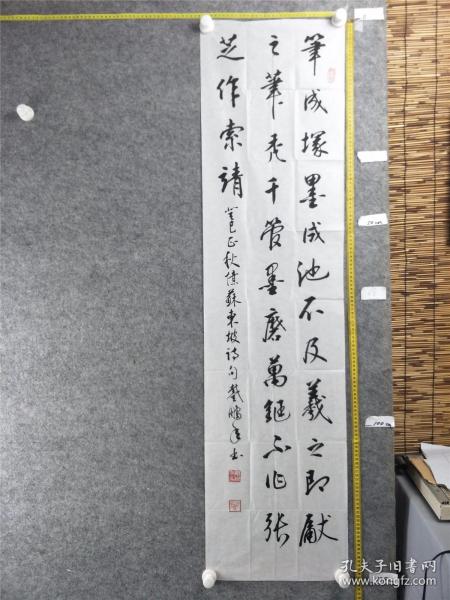 筆成塚墨成池不及羲之即獻
之筆禿千管墨磨萬鋌不作張
芝作索靖
癸巳正秋蘇東坡詩句書
50 cm
100 cm
孔夫子旧书网
www.kongfz.com